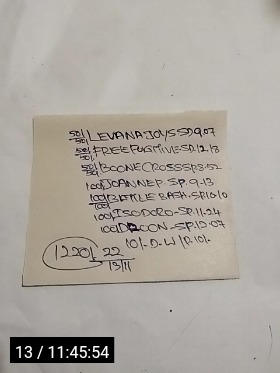 50/50/ LEVANAJOYSSD9.07
50/50/ FREEFUGITIVE-SD/2/8
50/50/ BOONECROSSSP.8-52
100/JOANNEP-SP.9-13
100/100/ BATTLE BASH-SP.10/10
100/ISODORO-SP.11-24
100/D CON-SP.10-07
10/-D-W/P.10/-
1220/ 22
13/11
13 / 11:45:54